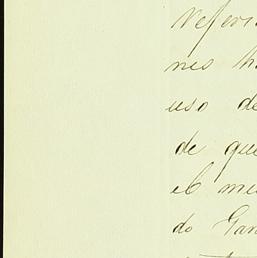 Referi
nes h
uso de
de que
el me
do Gan